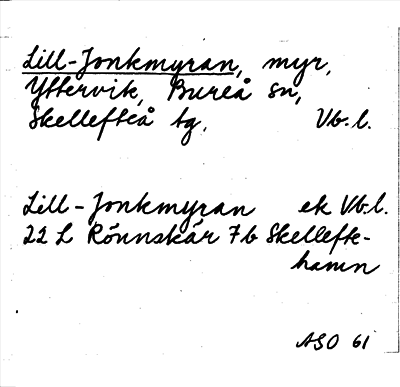 Lill-Jonkmyran, myr,
Yttervik, Bureå sn,
Skellefteå tg, Vb. l.
Lill-Jonkmyran ek Vb.l.
22 L Rönnskär 7b Skellefte-
hamn
ASO 61